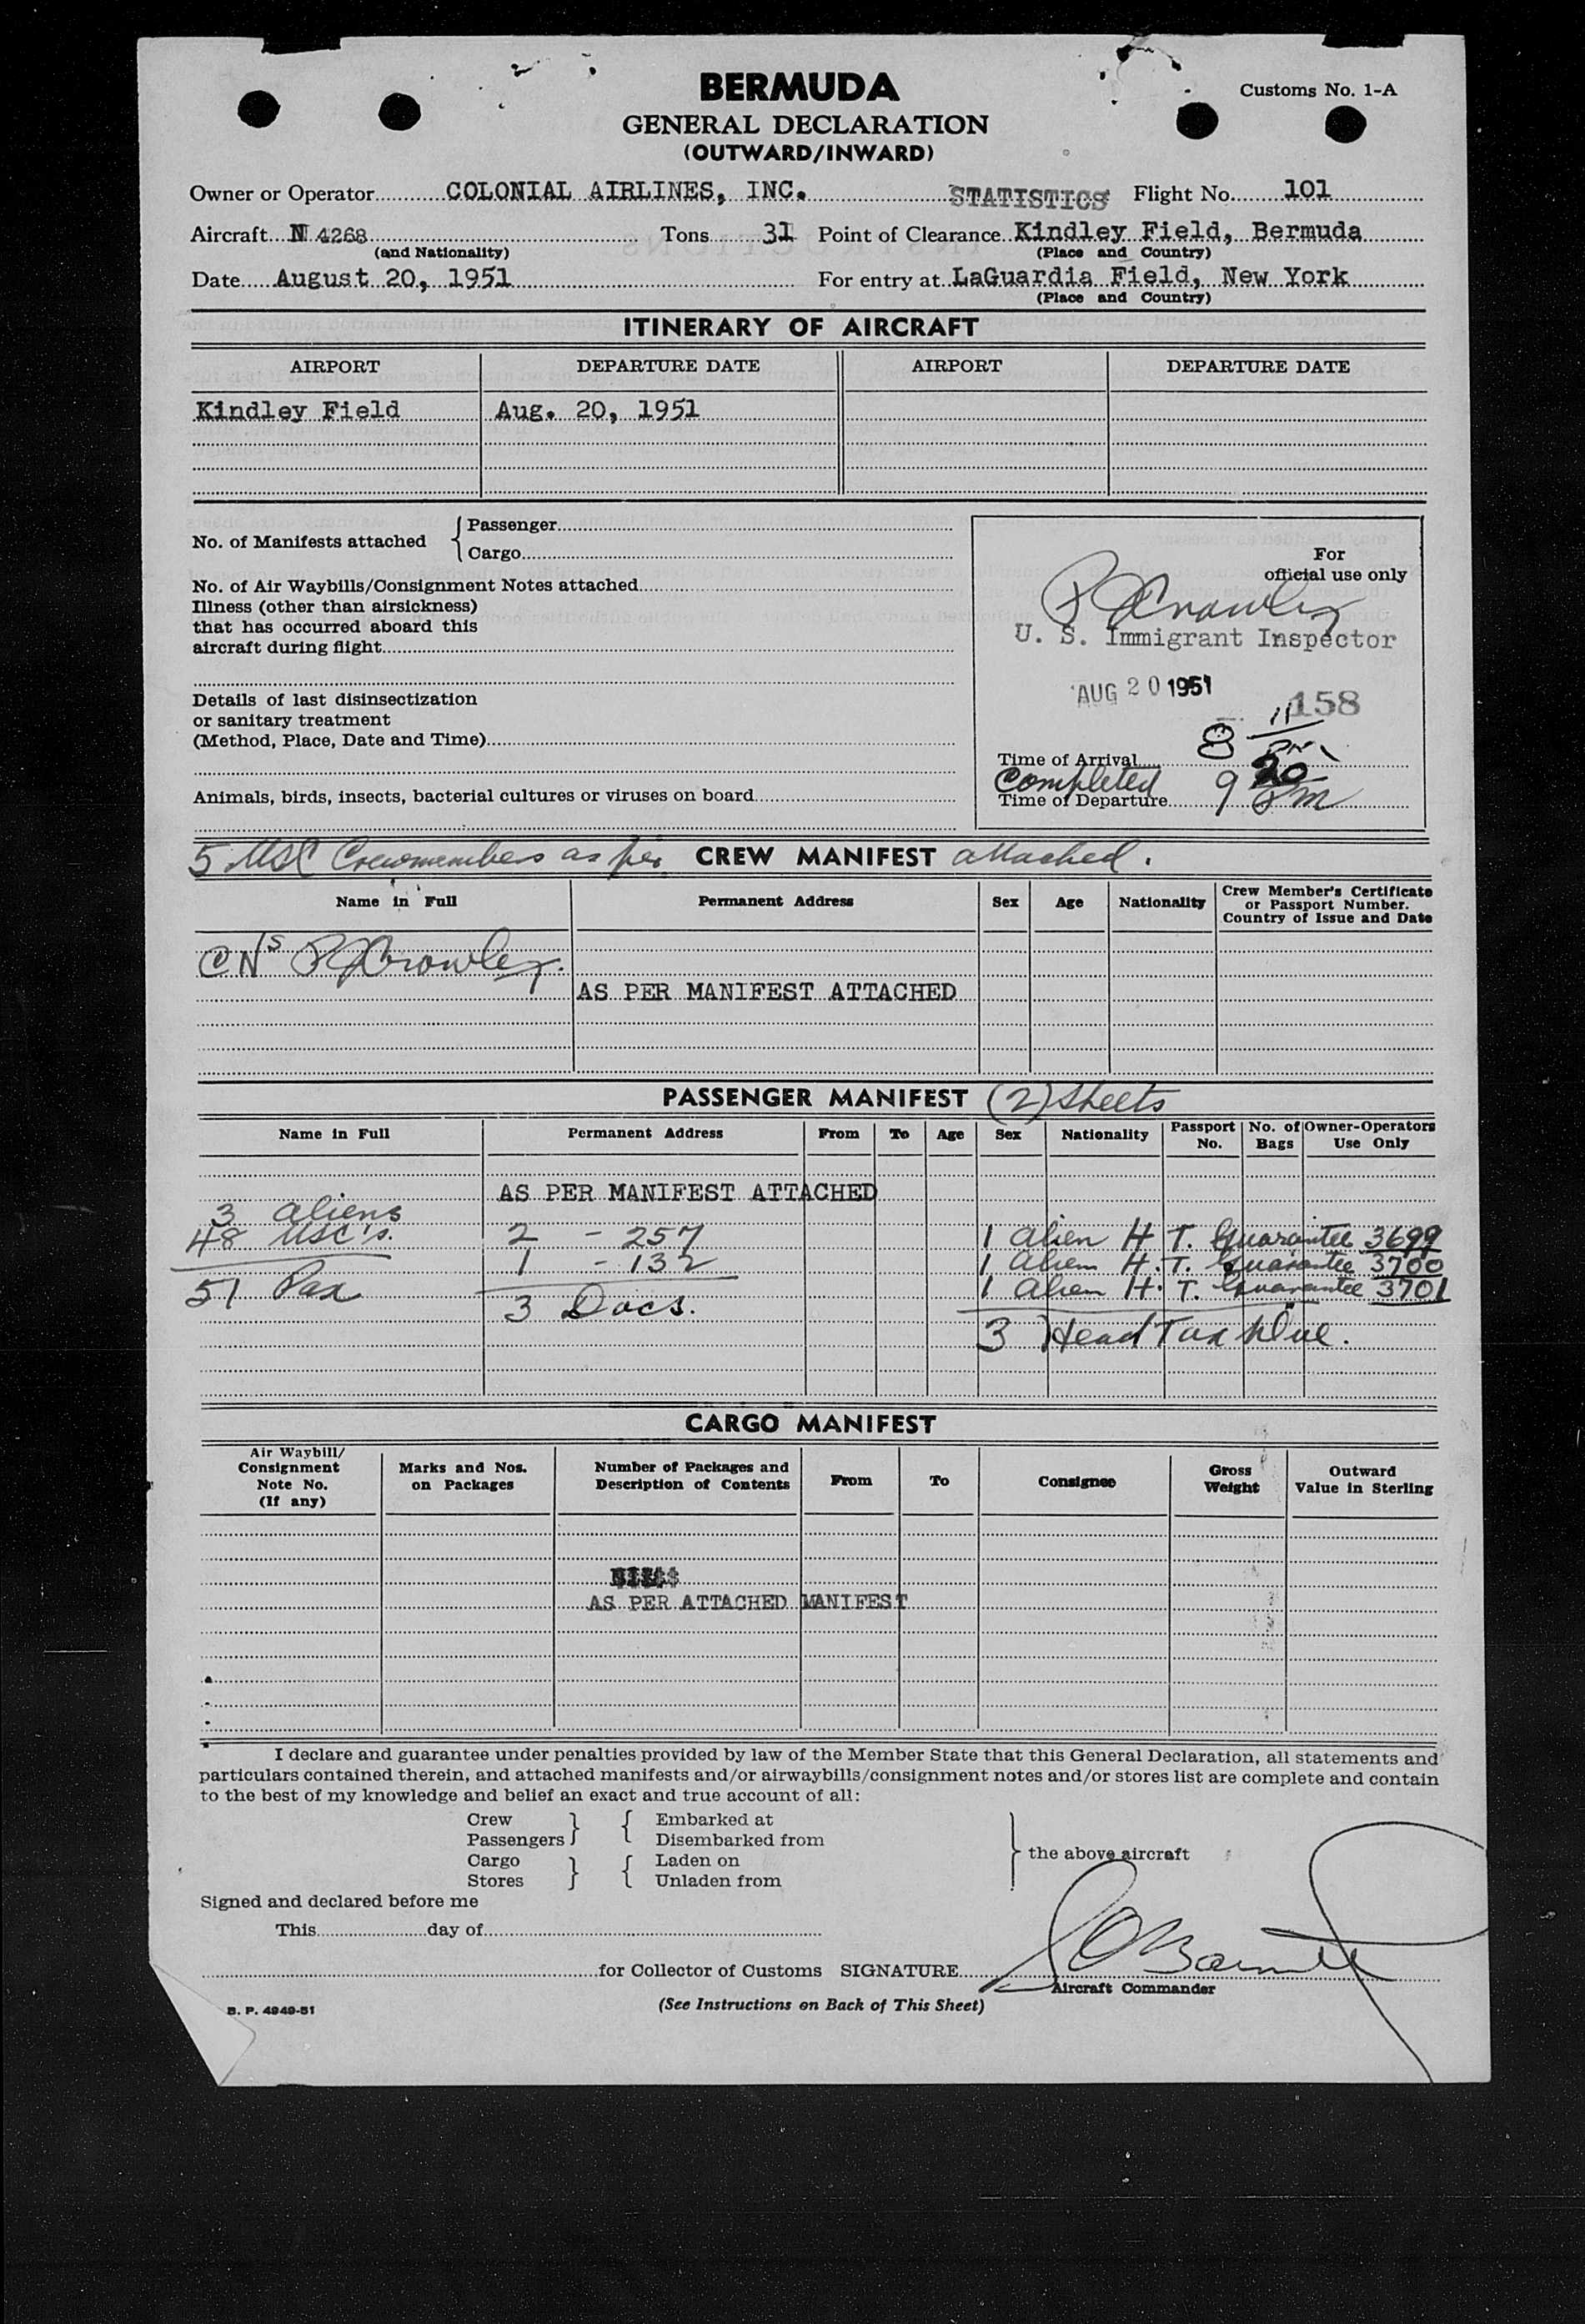 BERMUDA
Customs No. 1-A
GENERAL DECLARATION
(OUTWARD/INWARD)
Owner or Operator COLONIAL AIRLINES, INC. STATISTICS Flight No. 101
Aircraft N 4268 Tons 31 Point of Clearance Kindley Field, Bermuda
(and Nationality) (Place and Country)
Date August 20, 1951 For entry at LaGuardia Field, New York
(Place and Country)
ITINERARY OF AIRCRAFT
AIRPORT DEPARTURE DATE AIRPORT DEPARTURE DATE
Kindley Field Aug. 20, 1951
No. of Manifests attached { Passenger
Cargo
No. of Air Waybills/Consignment Notes attached
Illness (other than airsickness)
that has occurred aboard this
aircraft during flight
Details of last disinsectization
or sanitary treatment
(Method, Place, Date and Time)
Animals, birds, insects, bacterial cultures or viruses on board
For
official use only
P J Crowley
U. S. Immigrant Inspector
AUG 20 1951
158
Time of Arrival 8 11 PM
Completed
Time of Departure 9 20 PM
5 USC Crewmembers as per CREW MANIFEST attached.
Name in Full Permanent Address Sex Age Nationality Crew Member's Certificate
or Passport Number.
Country of Issue and Date
P J Crowley.
AS PER MANIFEST ATTACHED
PASSENGER MANIFEST (2) Sheets
Name in Full Permanent Address From To Age Sex Nationality Passport No. No. of Bags Owner-Operators Use Only
AS PER MANIFEST ATTACHED
3 aliens
48 USC's. 2 - 257 1 Alien H. T. Guarantee 3699
1 - 132 1 Alien H. T. Guarantee 3700
51 Pax 1 Alien H. T. Guarantee 3701
3 Docs.
3 Head Tax Due.
CARGO MANIFEST
Air Waybill/
Consignment
Note No.
(If any)
Marks and Nos.
on Packages
Number of Packages and
Description of Contents
From To Consignee
Gross
Weight
Outward
Value in Sterling
AS PER ATTACHED MANIFEST
I declare and guarantee under penalties provided by law of the Member State that this General Declaration, all statements and
particulars contained therein, and attached manifests and/or airwaybills/consignment notes and/or stores list are complete and contain
to the best of my knowledge and belief an exact and true account of all:
Crew } { Embarked at
Passengers } { Disembarked from
} the above aircraft
Cargo } { Laden on
Stores } { Unladen from
Signed and declared before me
This day of
for Collector of Customs SIGNATURE
Aircraft Commander
B. P. 4949-51
(See Instructions on Back of This Sheet)